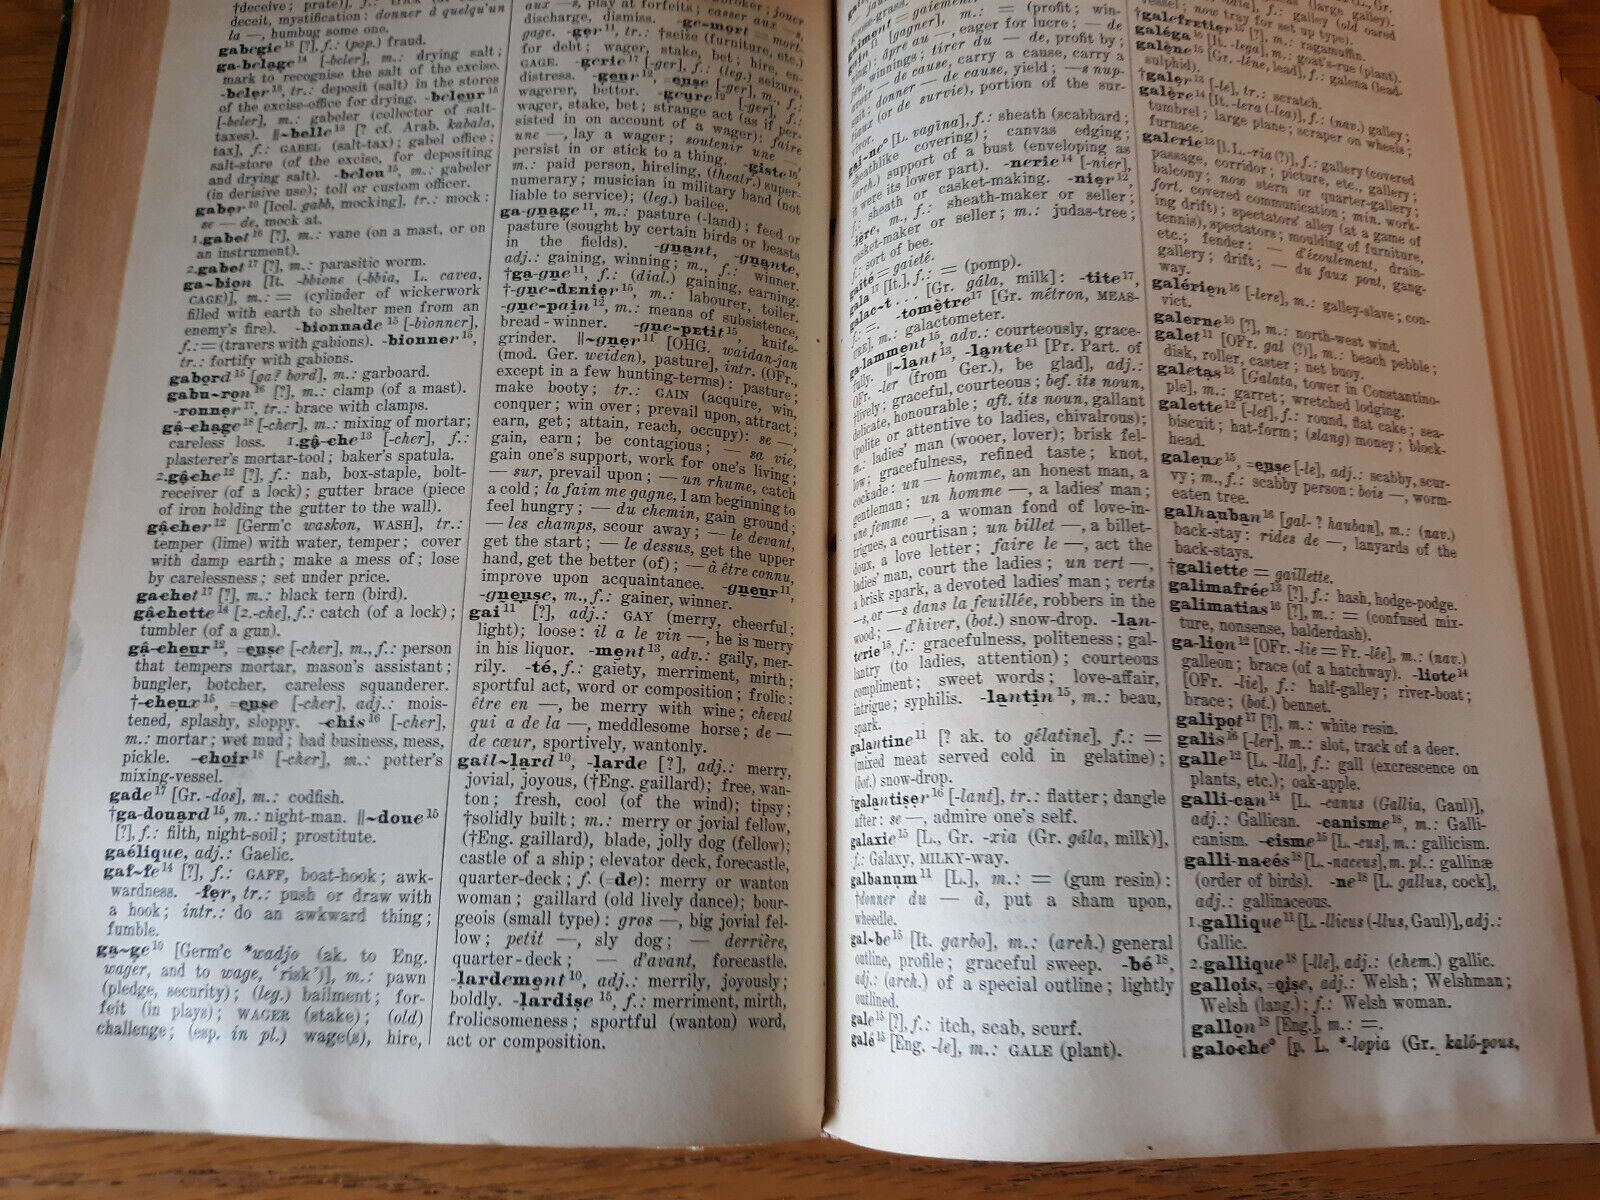 †deceive; prate)], f.: trick
deceit, mystification: donner à quelqu'un
la —, humbug some one.
gabegie¹⁸ [?], f.: (pop.) fraud.
ga-belage¹⁴ [-beler], m.: drying salt;
mark to recognise the salt of the excise.
-beler¹³, tr.: deposit (salt) in the stores
of the excise-office for drying. -beleur¹⁵
[-beler], m.: gabeler (collector of salt-
taxes). ||~belle¹³ [? cf. Arab. kabala,
tax], f.: GABEL (salt-tax); gabel office;
salt-store (of the excise, for depositing
and drying salt). -belou¹⁵, m.: gabeler
(in derisive use); toll or custom officer.
gaber¹⁰ [Icel. gabb, mocking], tr.: mock:
se — de, mock at.
1.gabet¹⁶ [?], m.: vane (on a mast, or on
an instrument).
2.gabet¹⁷ [?], m.: parasitic worm.
ga~bion [It. -bbione (-bbia, L. cavea,
CAGE)], m.: = (cylinder of wickerwork
filled with earth to shelter men from an
enemy's fire). -bionnade¹⁵ [-bionner],
f.: = (travers with gabions). -bionner¹⁵,
tr.: fortify with gabions.
gabord¹⁵ [ga? bord], m.: garboard.
gabu~ron¹⁶ [?], m.: clamp (of a mast).
-ronner¹⁷, tr.: brace with clamps.
gâ-chage¹⁸ [-cher], m.: mixing of mortar;
careless loss. 1.gâ-che¹³ [-cher], f.:
plasterer's mortar-tool; baker's spatula.
2.gâche¹² [?], f.: nab, box-staple, bolt-
receiver (of a lock); gutter brace (piece
of iron holding the gutter to the wall).
gâcher¹² [Germ'c waskon, WASH], tr.:
temper (lime) with water, temper; cover
with damp earth; make a mess of; lose
by carelessness; set under price.
gachet¹⁷ [?], m.: black tern (bird).
gâchette¹⁴ [2.-che], f.: catch (of a lock);
tumbler (of a gun).
gâ-cheur¹², =euse [-cher], m., f.: person
that tempers mortar, mason's assistant;
bungler, botcher, careless squanderer.
†-cheux¹⁶, =euse [-cher], adj.: mois-
tened, splashy, sloppy. -chis¹⁶ [-cher],
m.: mortar; wet mud; bad business, mess,
pickle. -choir¹⁸ [-cher], m.: potter's
mixing-vessel.
gade¹⁷ [Gr. -dos], m.: codfish.
†ga-douard¹⁵, m.: night-man. ||~doue¹⁵
[?], f.: filth, night-soil; prostitute.
gaélique, adj.: Gaelic.
gaf~fe¹⁴ [?], f.: GAFF, boat-hook; awk-
wardness. -fer, tr.: push or draw with
a hook; intr.: do an awkward thing;
fumble.
ga~ge¹⁰ [Germ'c *wadjo (ak. to Eng.
wager, and to wage, 'risk')], m.: pawn
(pledge, security); (leg.) bailment; for-
feit (in plays); WAGER (stake); (old)
challenge; (esp. in pl.) wage(s), hire,
aux —s, play at forfeits; casser aux —s,
discharge, dismiss. -ge-mort = mort-
gage. -ger¹¹, tr.: †seize (furniture, etc.)
for debt; wager, stake, bet; hire, en-
GAGE. -gerie¹⁷ [-ger], f.: (leg.) seizure,
distress. -geur¹², =euse [-ger], m., f.:
wagerer, bettor. -geure¹² [-ger], f.:
wager, stake, bet; strange act (as if per-
sisted in on account of a wager): faire
une —, lay a wager; soutenir une —
persist in or stick to a thing. -giste¹⁵,
m.: paid person, hireling, (theatr.) super-
numerary; musician in military band (not
liable to service); (leg.) bailee.
ga-gnage¹¹, m.: pasture (-land); feed or
pasture (sought by certain birds or beasts
in the fields). -gnant, -gnante,
adj.: gaining, winning; m., f.: winner.
†ga-gne¹¹, f.: (dial.) gaining, earning.
†-gne-denier¹⁵, m.: labourer, toiler.
-gne-pain¹², m.: means of subsistence,
bread-winner. -gne-petit¹⁵, knife-
grinder. ||~gner¹¹ [OHG. waidan-jan
(mod. Ger. weiden), pasture], intr. (OFr.,
except in a few hunting-terms): pasture;
make booty; tr.: GAIN (acquire, win,
conquer; win over; prevail upon, attract;
earn, get; attain, reach, occupy): se —,
gain, earn; be contagious; — sa vie,
gain one's support, work for one's living;
— sur, prevail upon; — un rhume, catch
a cold; la faim me gagne, I am beginning to
feel hungry; — du chemin, gain ground;
— les champs, scour away; — le devant,
get the start; — le dessus, get the upper
hand, get the better (of); — à être connu,
improve upon acquaintance. -gneur¹¹,
-gneuse, m., f.: gainer, winner.
gai¹¹ [?], adj.: GAY (merry, cheerful;
light); loose: il a le vin —, he is merry
in his liquor. -ment¹³, adv.: gaily, mer-
rily. -té, f.: gaiety, merriment, mirth;
sportful act, word or composition; frolic:
être en —, be merry with wine; cheval
qui a de la —, meddlesome horse; de —
de cœur, sportively, wantonly.
gail~lard¹⁰, -larde [?], adj.: merry,
jovial, joyous, (†Eng. gaillard); free, wan-
ton; fresh, cool (of the wind); tipsy;
†solidly built; m.: merry or jovial fellow,
(†Eng. gaillard), blade, jolly dog (fellow);
castle of a ship; elevator deck, forecastle,
quarter-deck; f. (=de): merry or wanton
woman; gaillard (old lively dance); bour-
geois (small type): gros —, big jovial fel-
low; petit —, sly dog; — derrière,
quarter-deck; — d'avant, forecastle.
-lardement¹⁰, adv.: merrily, joyously;
boldly. -lardise¹⁵, f.: merriment, mirth,
frolicsomeness; sportful (wanton) word,
act or composition.
gaiement
[gagner], m.: = (profit; win-
ning): âpre au —, eager for lucre; — de
winnings; tirer du — de, profit by;
avoir — de cause, carry a cause, carry a
suit; donner — de cause, yield; —s nup-
tiaux (or de survie), portion of the sur-
vivor.
gai-ne⁹ [L. vagina], f.: sheath (scabbard;
sheathlike covering); canvas edging;
(arch.) support of a bust (enveloping as
it were its lower part). -nerie¹⁴ [-nier],
f.: sheath or casket-making. -nier¹²,
=ière, m., f.: sheath-maker or seller;
casket-maker or seller; m.: judas-tree;
f.: sort of bee.
gaîté = gaieté.
gala¹⁷ [It.], f.: = (pomp).
galac-t... [Gr. gála, milk]: -tite¹⁷,
f.: =. -tomètre¹⁷ [Gr. métron, MEAS-
URE], m.: galactometer.
ga-lamment¹⁵, adv.: courteously, grace-
fully. ||~lant¹³, -lante¹¹ [Pr. Part. of
OFr. -ler (from Ger.), be glad], adj.:
†lively; graceful, courteous; bef. its noun,
delicate, honourable; aft. its noun, gallant
(polite or attentive to ladies, chivalrous);
m.: ladies' man (wooer, lover); brisk fel-
low; gracefulness, refined taste; knot,
cockade: un — homme, an honest man, a
gentleman; un homme —, a ladies' man;
une femme —, a woman fond of love-in-
trigues, a courtisan; un billet —, a billet-
doux, a love letter; faire le —, act the
ladies' man, court the ladies; un vert —,
a brisk spark, a devoted ladies' man; verts
—s, or —s dans la feuillée, robbers in the
wood; — d'hiver, (bot.) snow-drop. -lan-
terie¹⁵, f.: gracefulness, politeness; gal-
lantry (to ladies, attention); courteous
compliment; sweet words; love-affair,
intrigue; syphilis. -lantin¹⁵, m.: beau,
spark.
galantine¹¹ [? ak. to gélatine], f.: =
(mixed meat served cold in gelatine);
(bot.) snow-drop.
†galantiser¹⁶ [-lant], tr.: flatter; dangle
after: se —, admire one's self.
galaxie¹⁵ [L., Gr. -xia (Gr. gála, milk)],
f.: Galaxy, MILKY-way.
galbanum¹¹ [L.], m.: = (gum resin):
†donner du — à, put a sham upon,
wheedle.
gal~be¹⁵ [It. garbo], m.: (arch.) general
outline, profile; graceful sweep. -bé¹⁸,
adj.: (arch.) of a special outline; lightly
outlined.
gale¹⁵ [?], f.: itch, scab, scurf.
galé¹⁵ [Eng. -le], m.: GALE (plant).
(large galley).
f.: galley (old oared
vessel; now tray for set up type).
†galefretier¹⁵ [?], m.: ragamuffin.
galéga¹⁶ [It. -lega], m.: goat's-rue (plant).
galène¹⁵ [Gr. -lène, lead], f.: galena (lead-
sulphid).
†galer¹³ [-le], tr.: scratch.
galère¹⁴ [It. -lera (-lea)], f.: (nav.) galley;
tumbrel; large plane; scraper on wheels;
furnace.
galerie¹³ [LL.-ria (?)], f.: gallery (covered
passage, corridor; picture, etc., gallery;
balcony; now stern or quarter-gallery;
fort. covered communication; min. work-
ing drift); spectators' alley (at a game of
tennis), spectators; moulding of furniture,
etc.; fender: — d'écoulement, drain-
gallery; drift; — du faux pont, gang-
way.
galérien¹⁶ [-lère], m.: galley-slave; con-
vict.
galerne¹⁰ [?], m.: north-west wind.
galet¹¹ [OFr. gal (?)], m.: beach pebble;
disk, roller, caster; net buoy.
galetas¹³ [Galata, tower in Constantino-
ple], m.: garret; wretched lodging.
galette¹² [-let], f.: round, flat cake; sea-
biscuit; hat-form; (slang) money; block-
head.
galeux¹⁵, =euse [-le], adj.: scabby, scur-
vy; m., f.: scabby person: bois —, worm-
eaten tree.
galhauban¹⁶ [gal- ? hauban], m.: (nav.)
back-stay: rides de —, lanyards of the
back-stays.
†galiette = gaillette.
galimafrée¹³ [?], f.: hash, hodge-podge.
galimatias¹⁶ [?], m.: = (confused mix-
ture, nonsense, balderdash).
ga-lion¹² [OFr. -lie = Fr. -lée], m.: (nav.)
galleon; brace (of a hatchway). -liote¹⁴
[OFr. -lie], f.: half-galley; river-boat;
brace; (bot.) bennet.
galipot¹⁷ [?], m.: white resin.
galis¹⁶ [-ler], m.: slot, track of a deer.
galle¹² [L. -lla], f.: gall (excrescence on
plants, etc.); oak-apple.
galli-can¹⁴ [L. -canus (Gallia, Gaul)],
adj.: Gallican. -canisme¹⁸, m.: Galli-
canism. -cisme¹⁵ [L. -cus], m.: gallicism.
galli-nacés¹⁸ [L. -naceus], m. pl.: gallinæ
(order of birds). -ne¹⁸ [L. gallus, cock],
adj.: gallinaceous.
1.gallique¹¹ [L. -llicus (-llus, Gaul)], adj.:
Gallic.
2.gallique¹⁸ [-lle], adj.: (chem.) gallic.
gallois, =oise, adj.: Welsh; Welshman;
Welsh (lang.); f.: Welsh woman.
gallon¹⁸ [Eng.], m.: =.
galoche⁹ [p. L. *-lopia (Gr. kaló-pous,